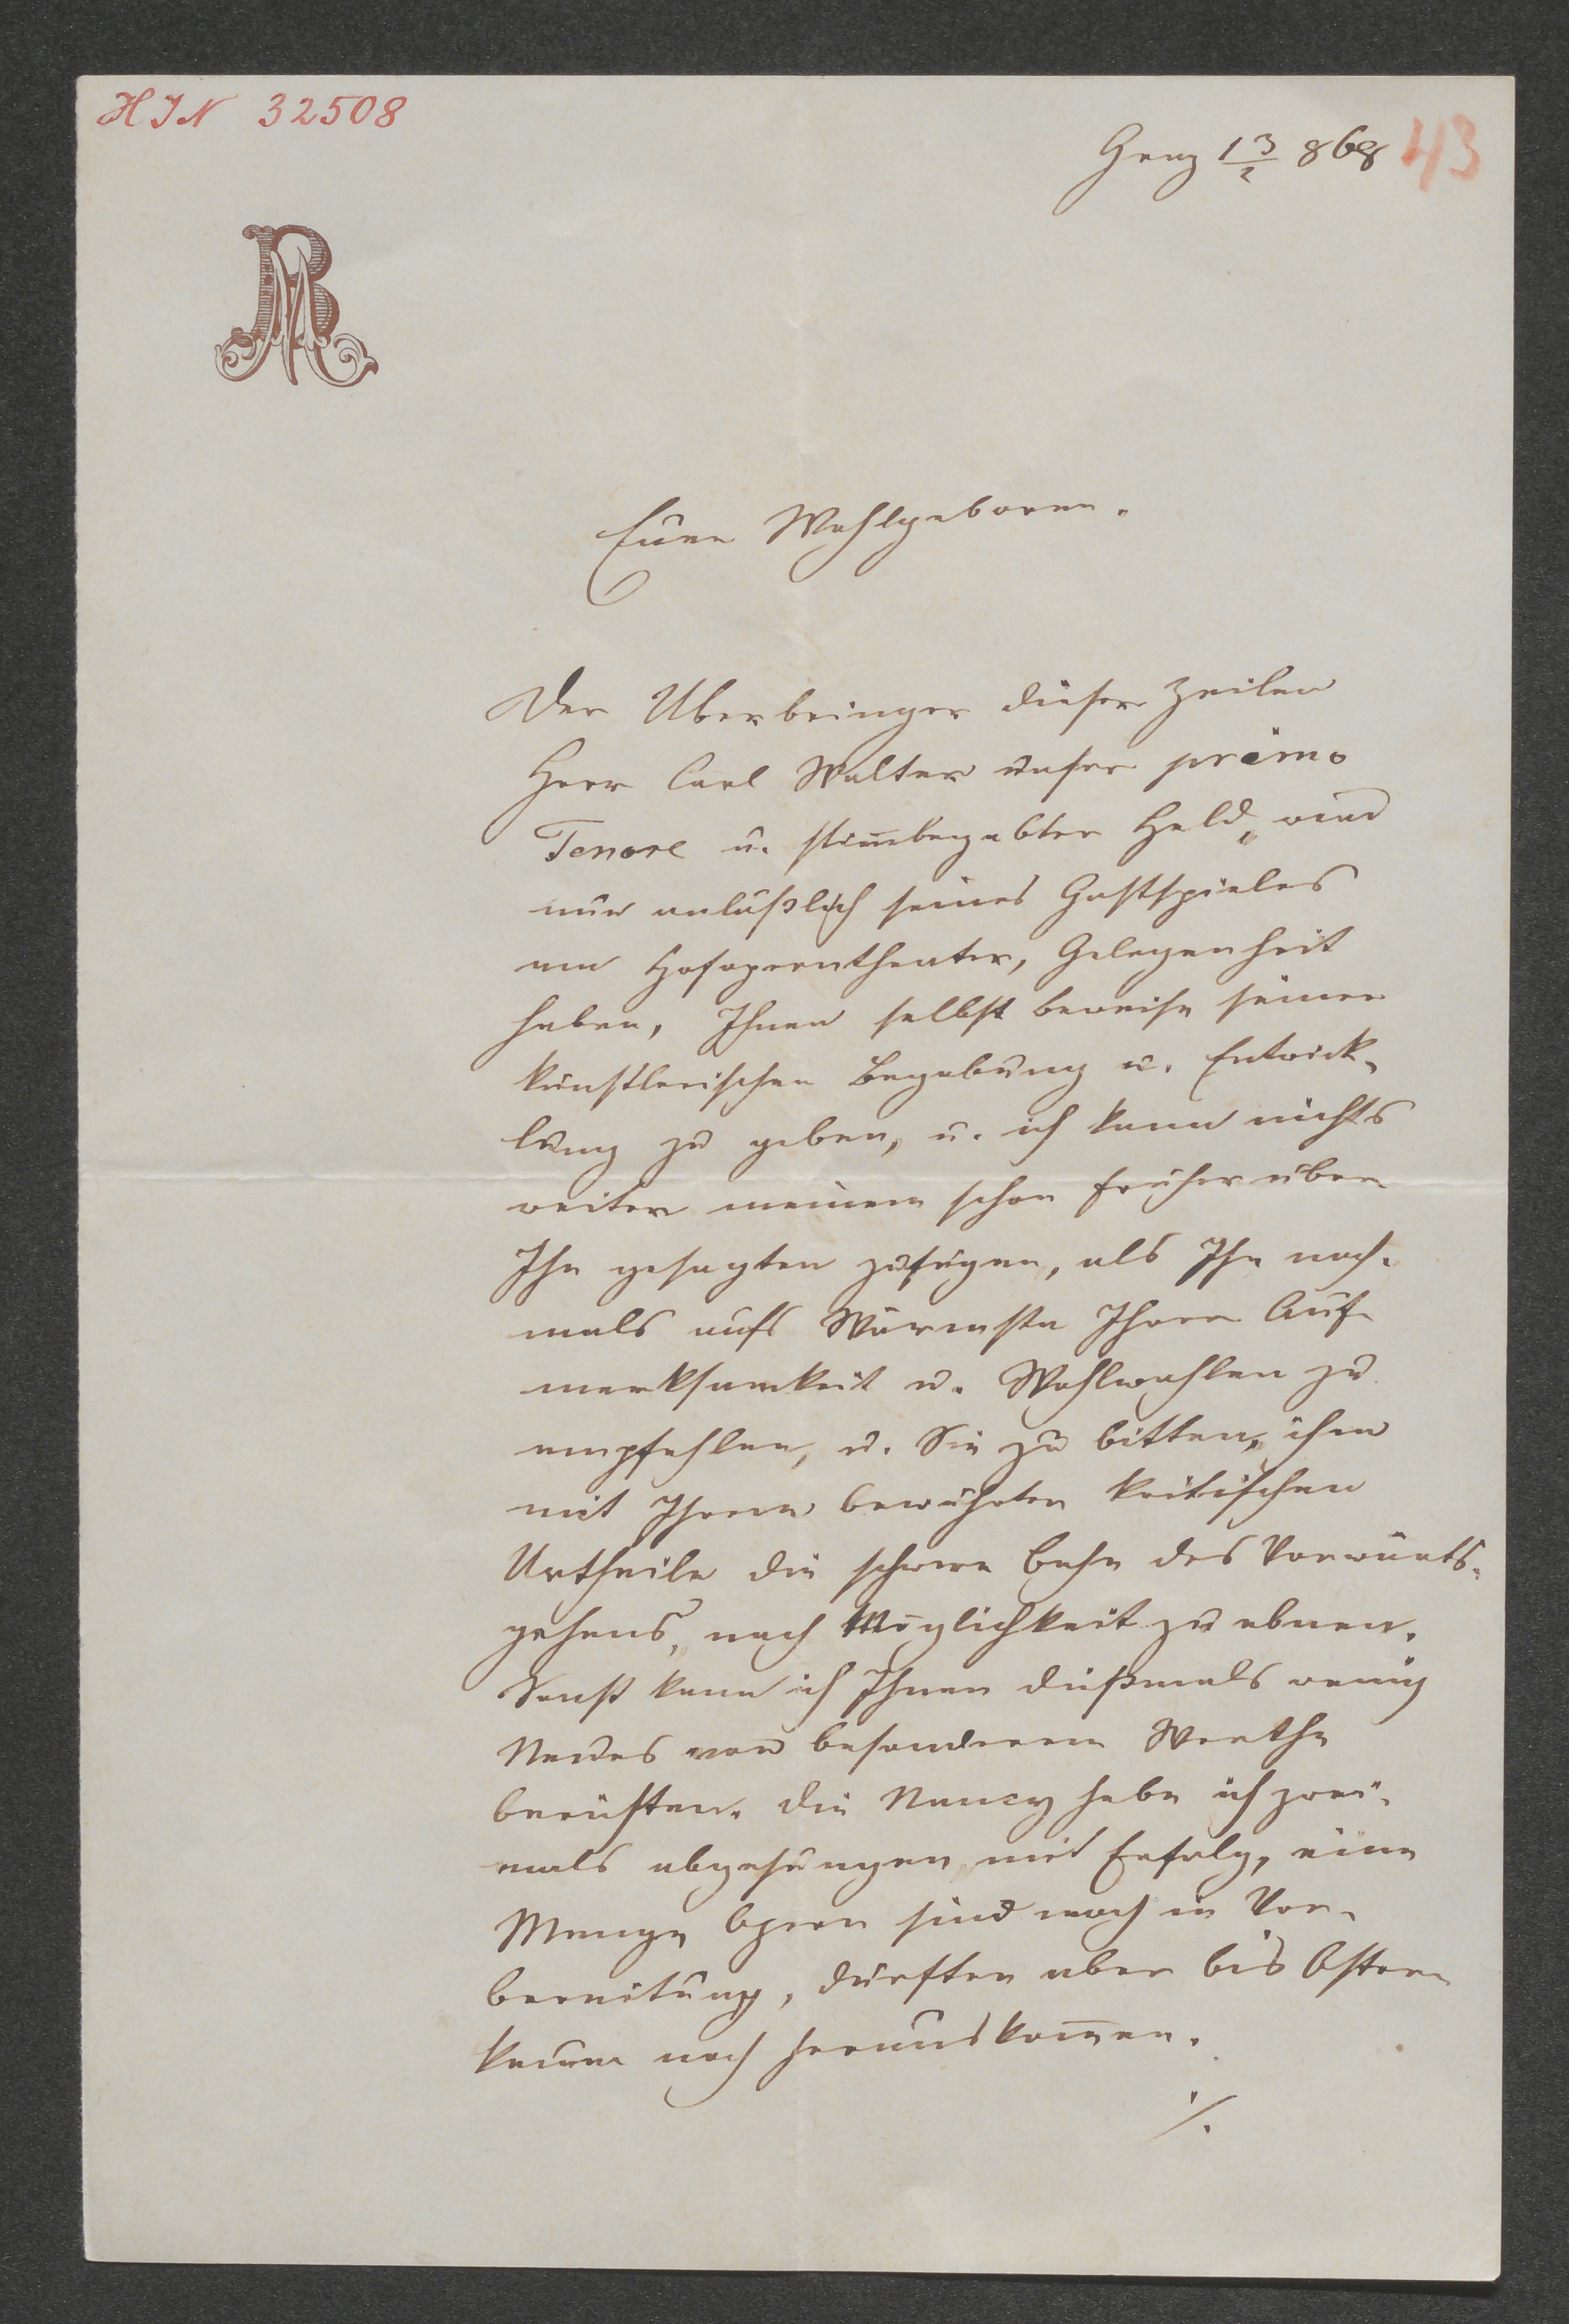 HIN 32508
Graz 13/2 868 43
BM
Euer Wohlgeboren.
Der Überbringer dieser Zeilen
Herr Carl Walter unser primo
Tenore u. stim̅begabter Held, wird
nun anläßlich seines Gastspieles
am Hofoperntheater, Gelegenheit
haben, Ihnen selbst beweise seiner
künstlerischen Begabung u. Entwick-
lung zu geben, u. ich kann nichts
weiter meinem schon früher über
Ihn gesagten zufügen, als Ihn noch-
mals aufs Wärmste Ihrer Auf-
merksamkeit u. Wohlwohlen zu
empfehlen, u. Sie zu bitten, ihm
mit Ihrem bewährten kritischen
Urtheile die schwere Bahn des Vorwärts-
gehens, nach Möglichkeit zu ebnen.
Sonst kann ich Ihnen dießmals wenig
Neues von besonderem Werthe
berichten. Die Nancy habe ich zwei-
mals abgesungen mit Erfolg, eine
Menge Opern sind noch in Vor-
bereitung, dürften aber bis Ostern
kaum noch herauskom̅en.
./.